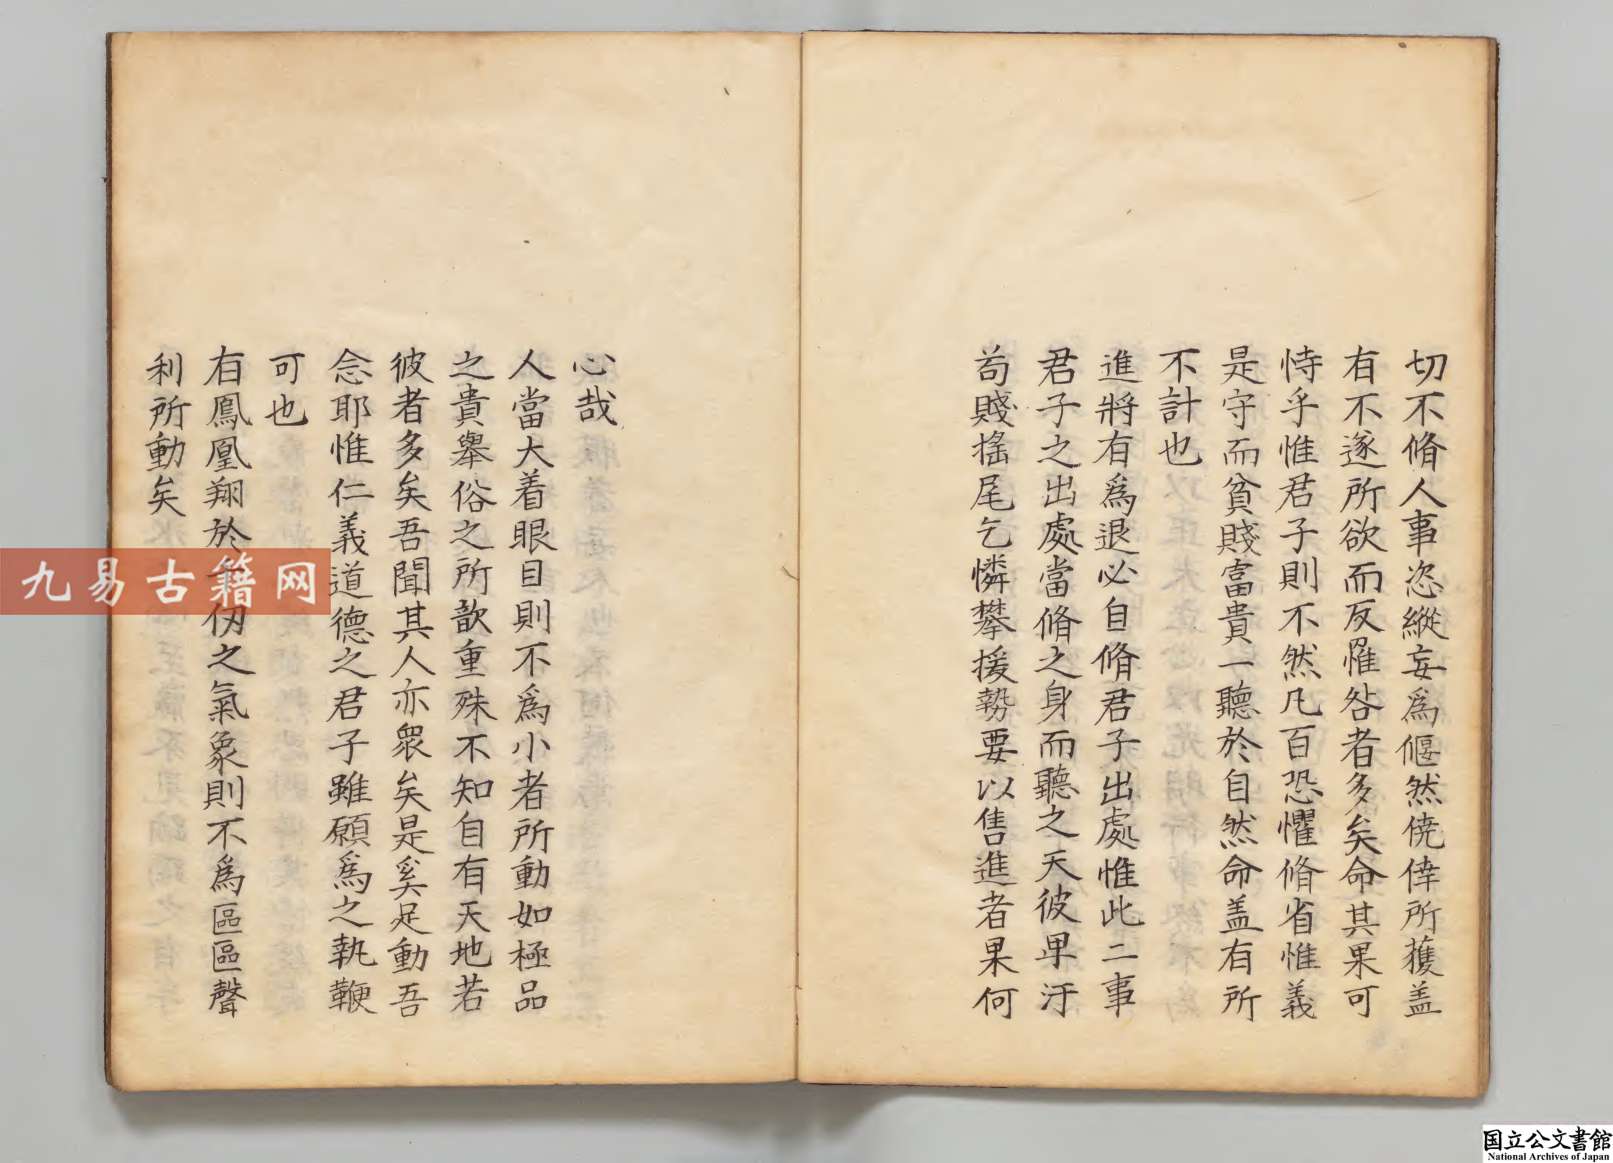 切不脩人事恣縱妄爲偃然僥倖所獲盖
有不遂所欲而反罹咎者多矣命其果可
恃乎惟君子則不然凡百恐懼脩省惟義
是守而貧賤富貴一聽於自然命盖有所
不計也
進將有爲退必自脩君子出處惟此二事
君子之出處當脩之身而聽之天彼卑汙
苟賤搖尾乞憐攀援勢要以售進者果何
心哉
人當大着眼目則不爲小者所動如極品
之貴舉俗之所歆重殊不知自有天地若
彼者多矣吾聞其人亦衆矣是奚足動吾
念耶惟仁義道德之君子雖願爲之執鞭
可也
有鳳凰翔於仞之氣象則不爲區區聲
利所動矣
九易古籍网
国立公文書館
National Archives of Japan